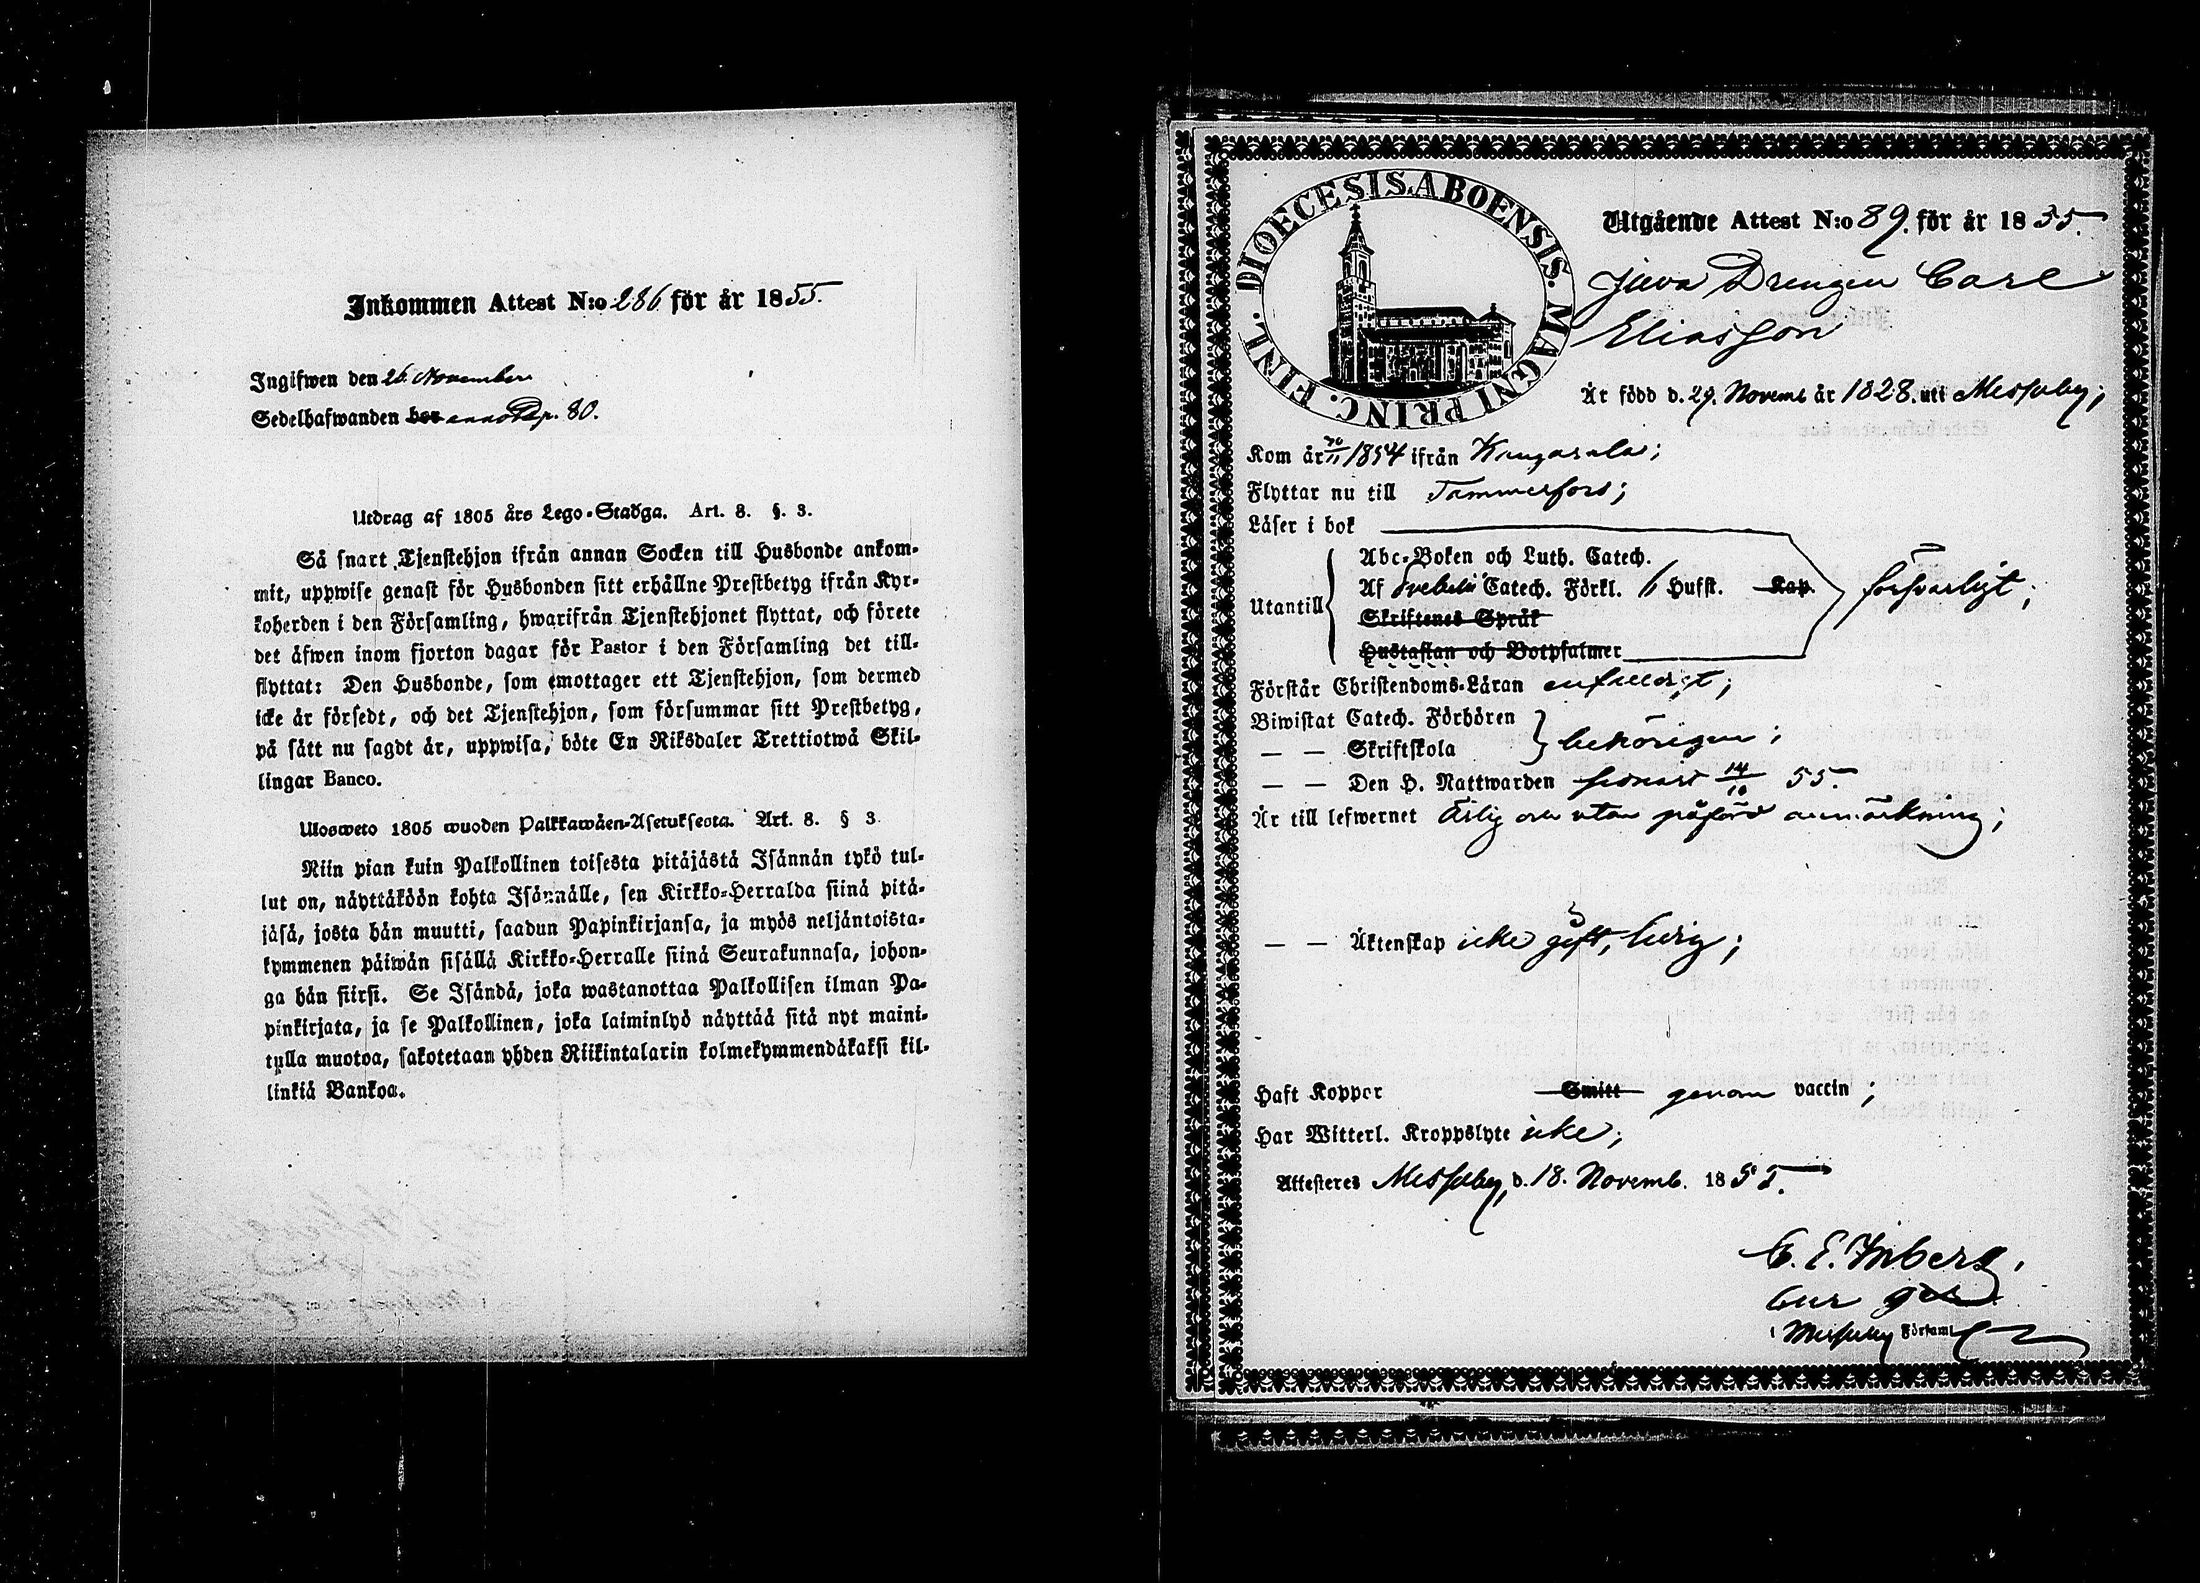 Inkommen Attest N:o 286. för år 1855.
Ingifwen den 26. November
Sedelhafwanden bor anno p. 80.
Utdrag af 1805 års Lego-Stadga. Art. 8. §. 3.
Så snart Tjenstehjon ifrån annan Socken till Husbonde ankom-
mit, uppwise genast för Husbonden sitt erhållne Prestbetyg ifrån Kyr-
koherden i den Församling, hwarifrån Tjenstehjonet flyttat, och förete
det äfwen inom fjorton dagar för Pastor i den Församling det till-
flyttat: Den Husbonde, som emottager ett Tjenstehjon, som dermed
icke är försedt, och det Tjenstehjon, som försummar sitt Prestbetyg,
på sätt nu sagdt är, uppwisa, böte En Riksdaler Trettiotwå Skil-
lingar Banco.
Ulosweto 1805 wuoden Palkkawäen-Asetuksesta. Art. 8. § 3.
Niin pian kuin Palkollinen toisesta pitäjästä Isännän tykö tul-
lut on, näyttäköön kohta Isännälle, sen Kirkko-Herralda siinä pitä-
jäsä, josta hän muutti, saadun Papinkirjansa, ja myös neljäntoista-
kymmenen päiwän sisällä Kirkko-Herralle siinä Seurakunnasa, johon-
ga hän siirsi. Se Isändä, joka wastanottaa Palkollisen ilman Pa-
pinkirjata, ja se Palkollinen, joka laiminlyö näyttää sitä nyt maini-
tulla muotoa, sakotetaan yhden Riikintalarin kolmekymmendäkaksi kil-
linkiä Bankoa.
DIOECESIS ABOENSIS. MAGNI PRINC. FINL.
Utgående Attest N:o 89. för år 1855.
Juva Drengen Carl
Eliasson
Är född d. 29. Novemb år 1828. uti Messuby;
Kom år 30/11 1854 ifrån Kangasala;
Flyttar nu till Tammerfors;
Läser i bok
Utantill
Abc-Boken och Luth. Catech.
Af Svebelii Catech. Förkl. 6 Hufst. Kap.
Skriftenes Språk
Hustaflan och Botpsalmer
försvarligt;
Förstår Christendoms-Läran enfaldigt;
Biwistat Catech. Förhören
— — Skriftskola
behörigen;
— — Den H. Nattwarden senast 14/10 55.
Är till lefwernet Ärlig och utan påförd anmärkning;
— — Äktenskap icke gift, ledig;
Haft Koppor Smitt genom vaccin;
Har Witterl. Kroppslyte icke;
Attesteras Messuby, d. 18. Novemb. 1855.
C. E.
i Messuby Församl